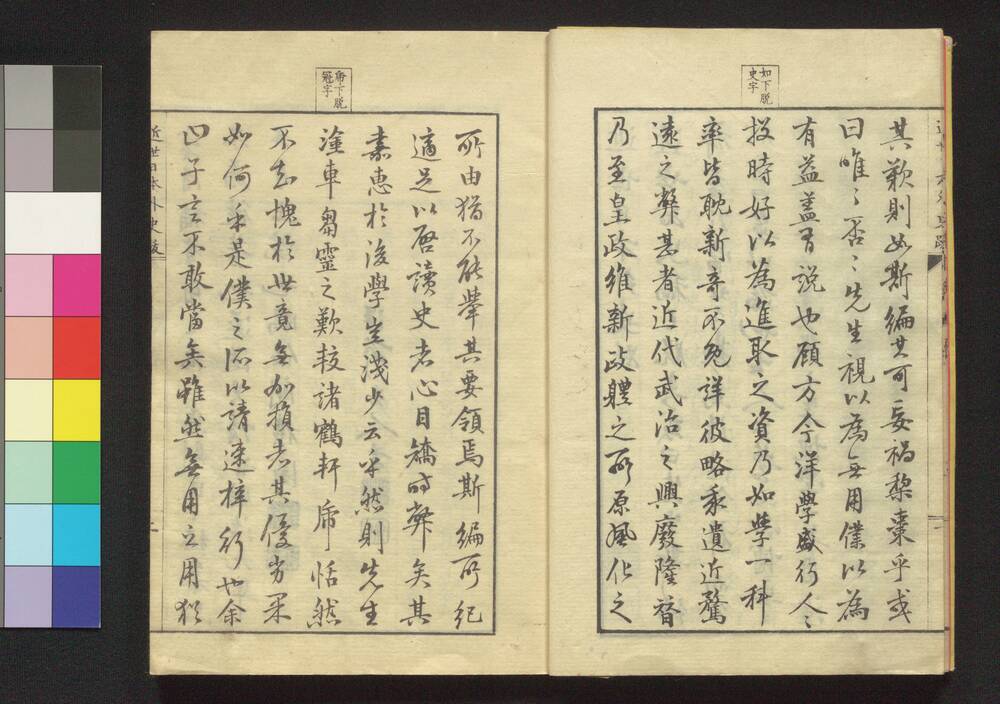 如下脱
史字
其歎則如斯編其可妄禍梨棗乎或
曰唯〻否〻先生視以為無用僕以為
有益蓋有説也顧方今洋學盛行人〻
投時好以為進取之資乃如學一科
率皆耽新奇不免詳彼略我遺近騖
遠之弊甚者近代武治之興廢隆替
乃至皇政維新政體之所原風化之
冠字
所由猶不能挙其要領焉斯編所紀
適足以啓讀史者心目矯時弊矣其
嘉惠於後學豈淺少云乎然則先生
塗車芻靈之歎較諸鶴軒席恬然
不知愧於世竟無加損者其優劣果
如何乎是僕之所以請速梓行也余
凶子言不敢當矣雖然無用之用猶
近世日本外史跋